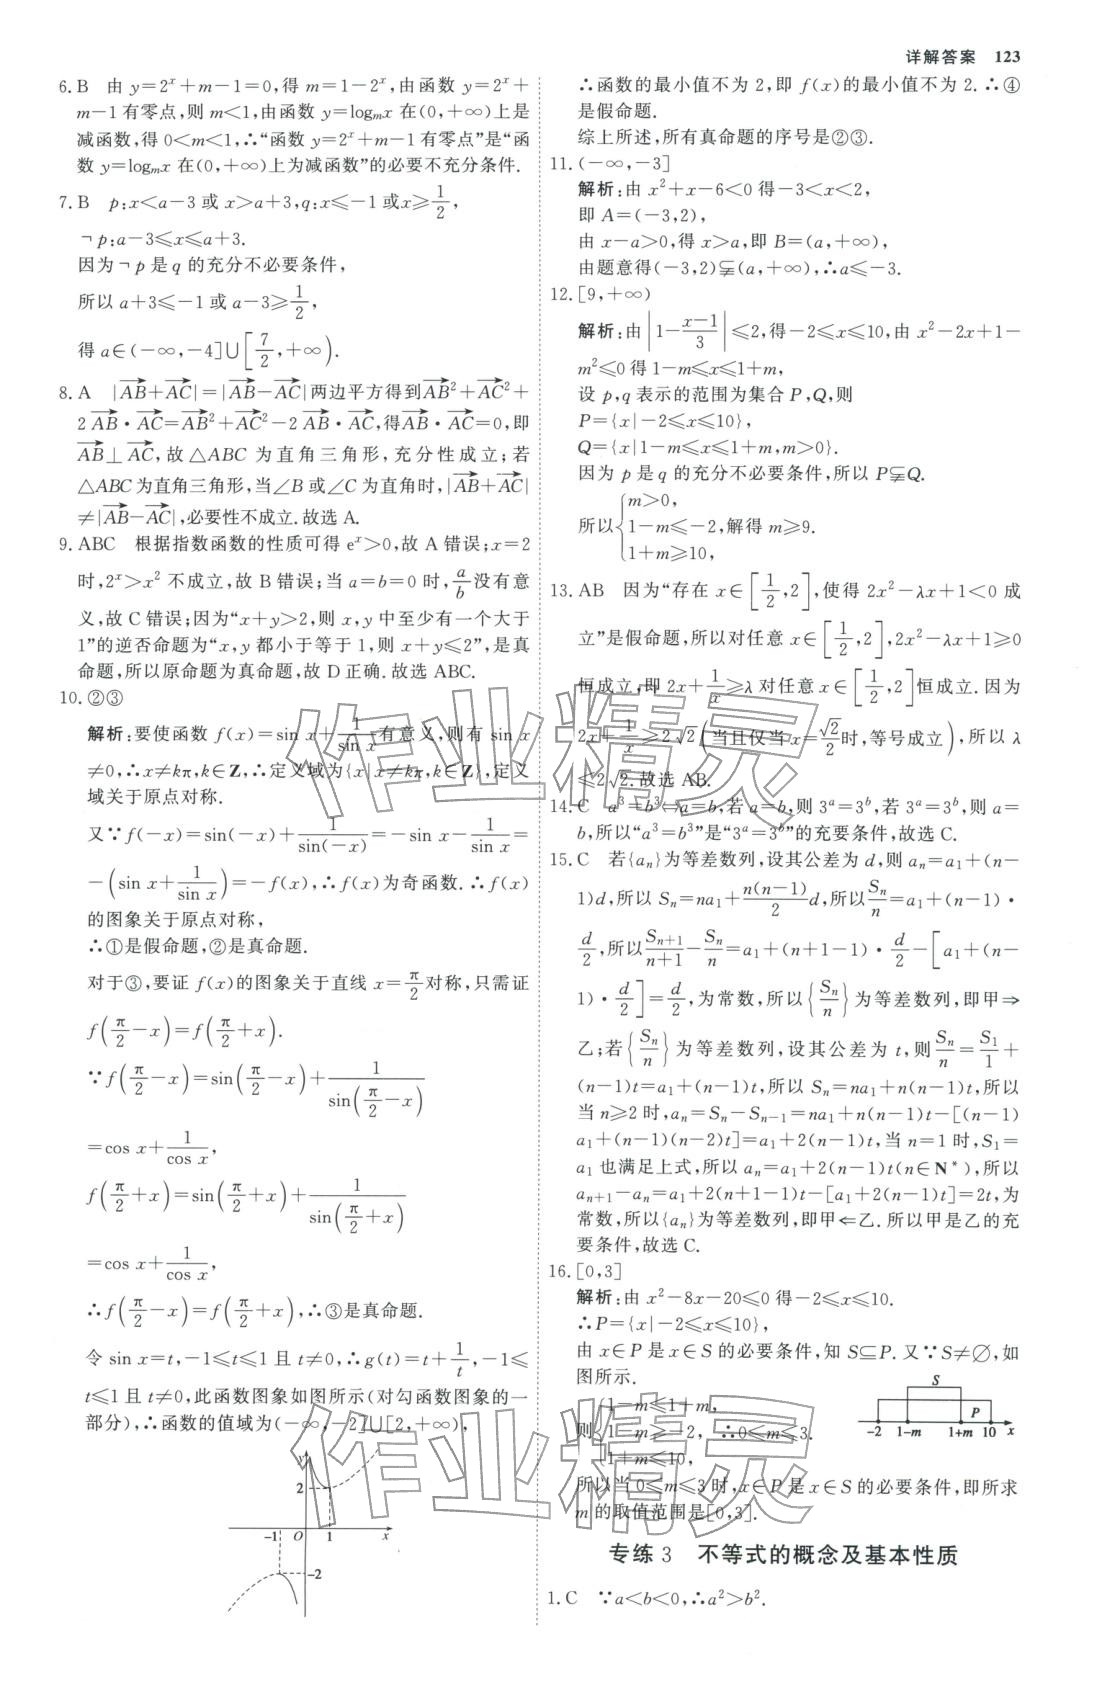 详解答案 123
6. B 由 y=2ˣ+m-1=0,得 m=1-2ˣ,由函数 y=2ˣ+
m-1有零点,则 m<1,由函数 y=logₘx 在(0,+∞)上是
减函数,得 0<m<1,∴“函数 y=2ˣ+m-1有零点”是“函
数 y=logₘx 在(0,+∞)上为减函数”的必要不充分条件.
7. B p:x<a-3 或 x>a+3,q:x≤-1 或x≥1/2,
¬p:a-3≤x≤a+3.
因为¬p 是 q 的充分不必要条件,
所以 a+3≤-1 或 a-3≥1/2,
得 a∈(-∞,-4]∪[7/2,+∞).
8. A |AB→+AC→|=|AB→-AC→|两边平方得到AB→²+AC→²+
2AB→·AC→=AB→²+AC→²-2AB→·AC→,得AB→·AC→=0,即
AB→⊥AC→,故△ABC 为直角三角形,充分性成立;若
△ABC为直角三角形,当∠B或∠C为直角时,|AB→+AC→|
≠|AB→-AC→|,必要性不成立.故选 A.
9. ABC 根据指数函数的性质可得 eˣ>0,故 A 错误;x=2
时,2ˣ>x² 不成立,故 B 错误;当 a=b=0 时,a/b没有意
义,故 C 错误;因为“x+y>2,则 x,y 中至少有一个大于
1”的逆否命题为“x,y 都小于等于 1,则 x+y≤2”,是真
命题,所以原命题为真命题,故 D 正确.故选 ABC.
10. ②③
解析:要使函数 f(x)=sin x+1/sin x有意义,则有 sin x
≠0,∴x≠kπ,k∈Z,∴定义域为{x|x≠kπ,k∈Z},定义
域关于原点对称.
又∵f(-x)=sin(-x)+1/sin(-x)=-sin x-1/sin x=
-(sin x+1/sin x)=-f(x),∴f(x)为奇函数.∴f(x)
的图象关于原点对称,
∴①是假命题,②是真命题.
对于③,要证 f(x)的图象关于直线 x=π/2对称,只需证
f(π/2-x)=f(π/2+x).
∵f(π/2-x)=sin(π/2-x)+1/sin(π/2-x)
=cos x+1/cos x,
f(π/2+x)=sin(π/2+x)+1/sin(π/2+x)
=cos x+1/cos x,
∴f(π/2-x)=f(π/2+x),∴③是真命题.
令 sin x=t,-1≤t≤1且 t≠0,∴g(t)=t+1/t,-1≤
t≤1且 t≠0,此函数图象如图所示(对勾函数图象的一
部分),∴函数的值域为(-∞,-2]∪[2,+∞),
y
2
-1 O 1 x
-2
∴函数的最小值不为 2,即 f(x)的最小值不为 2.∴④
是假命题.
综上所述,所有真命题的序号是②③.
11. (-∞,-3]
解析:由 x²+x-6<0 得-3<x<2,
即 A=(-3,2),
由 x-a>0,得 x>a,即 B=(a,+∞),
由题意得(-3,2)⫋(a,+∞),∴a≤-3.
12. [9,+∞)
解析:由|1-(x-1)/3|≤2,得-2≤x≤10,由 x²-2x+1-
m²≤0 得 1-m≤x≤1+m,
设 p,q 表示的范围为集合 P,Q,则
P={x|-2≤x≤10},
Q={x|1-m≤x≤1+m,m>0}.
因为 p 是 q 的充分不必要条件,所以 P⫋Q.
m>0,
所以{1-m≤-2,解得 m≥9.
1+m≥10,
13. AB 因为“存在 x∈[1/2,2],使得 2x²-λx+1<0 成
立”是假命题,所以对任意 x∈[1/2,2],2x²-λx+1≥0
恒成立,即 2x+1/x≥λ 对任意 x∈[1/2,2]恒成立.因为
2x+1/x≥2√2(当且仅当 x=√2/2时,等号成立),所以 λ
≤2√2.故选 AB.
14. C a³=b³⇔a=b,若 a=b,则 3ᵃ=3ᵇ,若 3ᵃ=3ᵇ,则 a=
b,所以“a³=b³”是“3ᵃ=3ᵇ”的充要条件,故选 C.
15. C 若{aₙ}为等差数列,设其公差为 d,则 aₙ=a₁+(n-
1)d,所以 Sₙ=na₁+n(n-1)/2 d,所以Sₙ/n=a₁+(n-1)·
d/2,所以Sₙ₊₁/(n+1)-Sₙ/n=a₁+(n+1-1)·d/2-[a₁+(n-
1)·d/2]=d/2,为常数,所以{Sₙ/n}为等差数列,即甲⇒
乙;若{Sₙ/n}为等差数列,设其公差为 t,则Sₙ/n=S₁/1+
(n-1)t=a₁+(n-1)t,所以 Sₙ=na₁+n(n-1)t,所以
当 n≥2 时,aₙ=Sₙ-Sₙ₋₁=na₁+n(n-1)t-[(n-1)
a₁+(n-1)(n-2)t]=a₁+2(n-1)t,当 n=1 时,S₁=
a₁ 也满足上式,所以 aₙ=a₁+2(n-1)t(n∈N*),所以
aₙ₊₁-aₙ=a₁+2(n+1-1)t-[a₁+2(n-1)t]=2t,为
常数,所以{aₙ}为等差数列,即甲⇐乙.所以甲是乙的充
要条件,故选 C.
16. [0,3]
解析:由 x²-8x-20≤0 得-2≤x≤10.
∴P={x|-2≤x≤10},
由 x∈P 是 x∈S 的必要条件,知 S⊆P.又∵S≠∅,如
图所示.
S
P
-2 1-m 1+m 10 x
1-m≤1+m,
则{1-m≥-2, ∴0≤m≤3.
1+m≤10,
所以当 0≤m≤3 时,x∈P 是 x∈S 的必要条件,即所求
m 的取值范围是[0,3].
专练 3 不等式的概念及基本性质
1. C ∵a<b<0,∴a²>b².
作业精灵
作业精灵